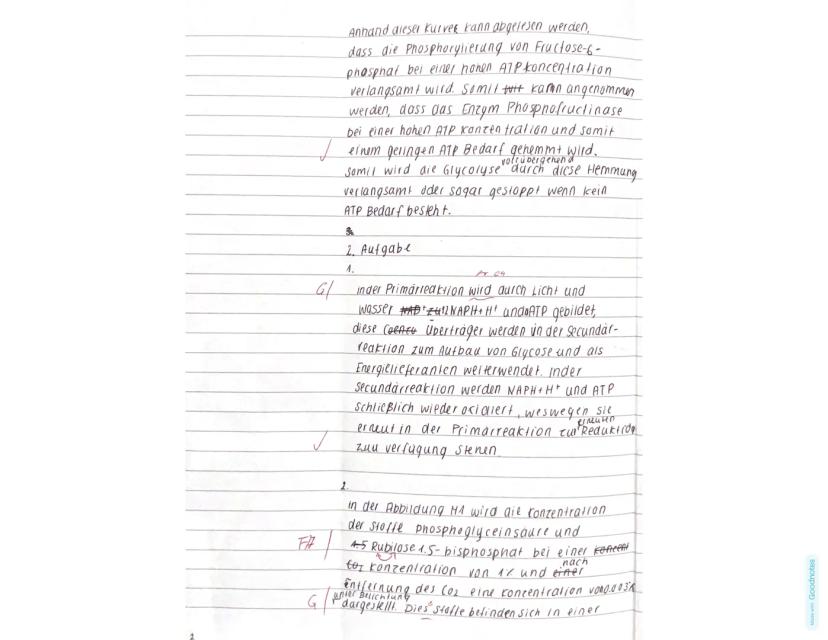 Anhand dieser Kurvek kann abgelesen werden,
dass die Phosphorylierung von Fructose-6-
phosphat bei einer hohen ATP Koncentration
verlangsamt wird. Somit kann angenommen
werden, dass das Enzym Phosphofructinase
bei einer hohen ATP Konzentration und somit
einem geringen ATP Bedarf gehemmt wird.
somit wird die Glycolyse vorrübergehend durch diese Hemmung
verlangsamt oder sogar gestoppt wenn kein
ATP Bedarf besteht.
2. Aufgabe
1.
G/ in der Primärreaktion wird durch Licht und
wasser 12 NAPH+H⁺ und ATP gebildet,
diese Coenco Überträger werden in der Secundär-
reaktion zum Aufbau von Glycose und als
Energielieferanten weiterwendet. In der
Secundärreaktion werden NAPH+H⁺ und ATP
schließlich wieder oxidiert, weswegen sie
erneut in der Primärreaktion zur erneuten Reduktion
zuu verfügung stehen
2.
in der Abbildung M1 wird die Konzentration
der Stoffe Phosphoglyceinsäure und
FA/ 1.5 Rubilose 1.5-bisphosphat bei einer koncent
CO₂ Konzentration von 1% und einer nach
Entfernung des CO₂ eine Konzentration von 0.003%
G/ unter Belichtung dargestellt. Dies Stoffe befinden sich in einer
2
Made with Goodnotes